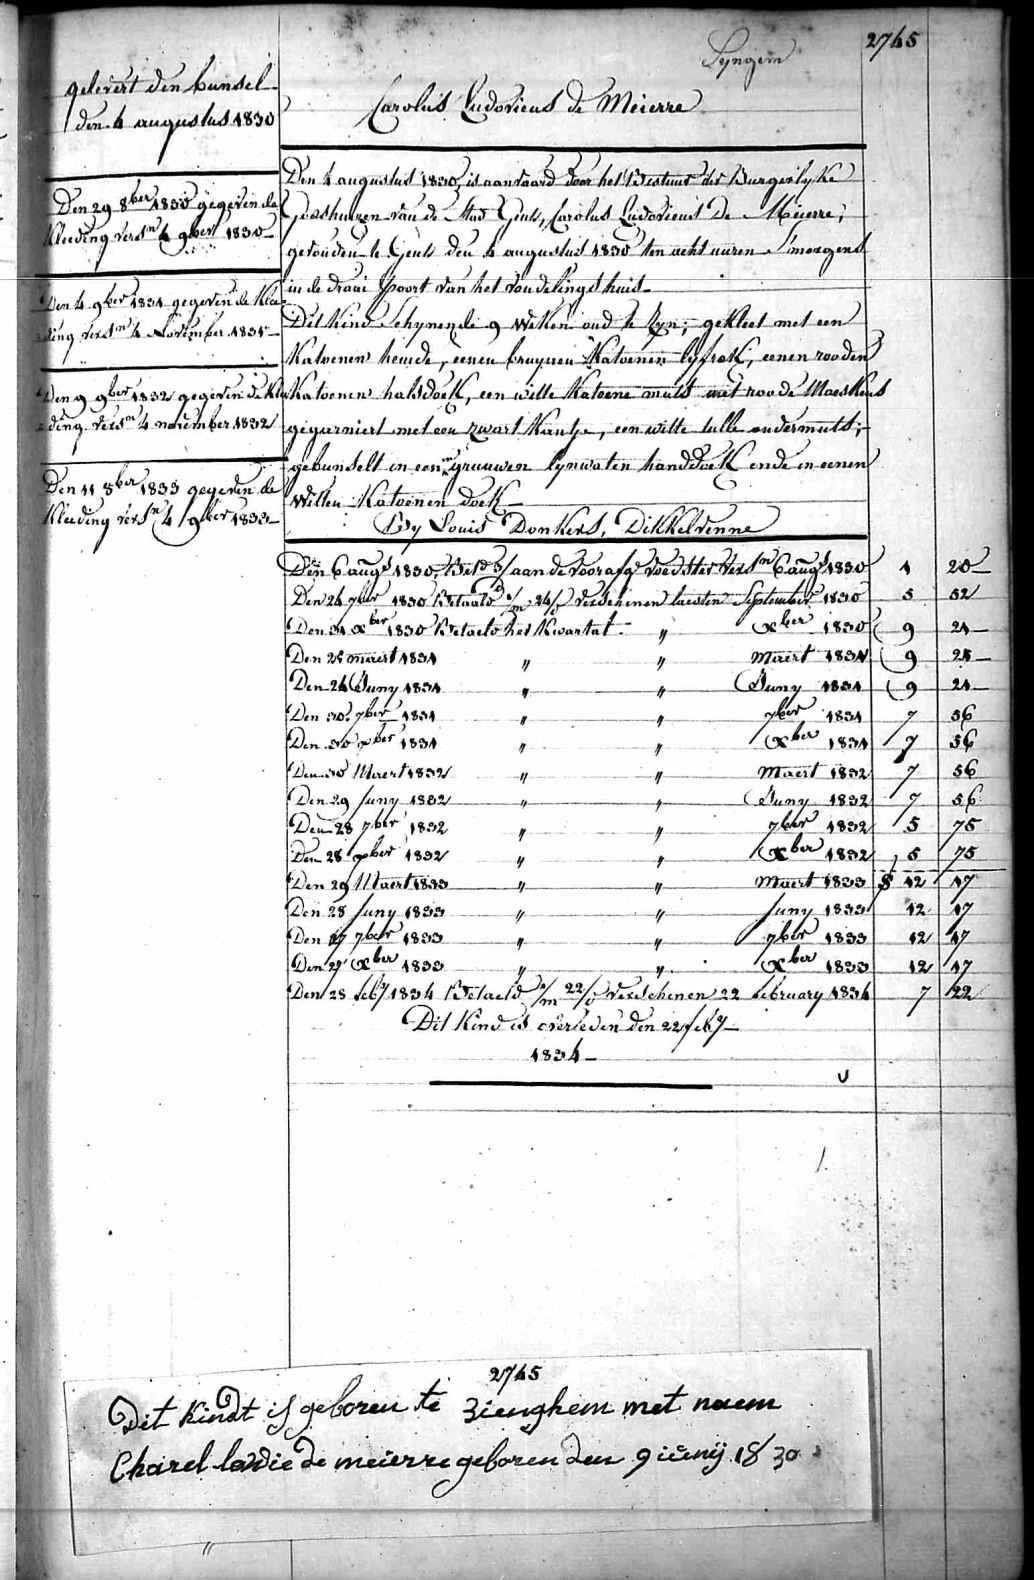 Syngem 2745
gelevert den bunsel
den 4 augustus 1830
Carolus Ludovicus de Meierre
Den 29 8ber 1830 gegeven de
Kleeding versn 4 9ber 1830
Den 4 9ber 1831 gegeven de Klee-
ding versn 4 November 1831
Den 9 9ber 1832 gegeven de Klee
ding versn 4 november 1832
Den 11 8ber 1833 gegeven de
Kleeding versn 4 9ber 1833
Den 4 augustus 1830, is aanvaard door het Bestuur der Burgerlyke
Godshuizen van de Stad Gent, Carolus Ludovicus De Meierre;
gevonden te Gent den 4 augustus 1830 ten acht uuren Smorgens
in de draai Poort van het vondelingshuis
Dit Kind Schynende 9 weken oud te Zyn; gekleet met een
Katoenen hemde, eenen bruynen Katoenen lyfrok, eenen rooden
Katoenen halsdoek, een witte Katoene muts met roode Moeskens
gegarniert met een zwart Kantje, een witte tulle ondermuts;
gebunselt in eenen grauwen lynwaten handdoek ende in eenen
Witten Katoenen doek
By Louis Donkers, Dikkelvenne
Den 6 augs 1830, Betd 3/ aan de voorafge voedster versn 6 augs 1830 1 20
Den 24 7ber 1830 Betaald 1/m 24/d verschenen laesten September 1830 5 52
Den 31 xber 1830 Betaeld het Kwartal „ xber 1830 9 21
Den 28 maert 1831 „ „ Maert 1831 9 21
Den 24 Juny 1831 „ „ Juny 1831 9 21
Den 30 7ber 1831 „ „ 7ber 1831 7 56
Den 30 xber 1831 „ „ xber 1831 7 56
Den 30 Maert 1832 „ „ Maert 1832 7 56
Den 29 Juny 1832 „ „ Juny 1832 7 56
Den 28 7ber 1832 „ „ 7ber 1832 5 75
Den 28 xber 1832 „ „ xber 1832 5 75
Den 29 Maert 1833 „ „ Maert 1833 12 17
Den 28 Juny 1833 „ „ Juny 1833 12 17
Den 27 7ber 1833 „ „ 7ber 1833 12 17
Den 27 xber 1833 „ „ xber 1833 12 17
Den 28 feby 1834 Betaeld 1/m 22/d verschenen 22 February 1834 7 22
Dit Kind is overleden den 22 feby
1834
2745
Dit kindt is geboren te Zienghem met naem
Charel lowie de meierre geboren den 9 iunij 1830